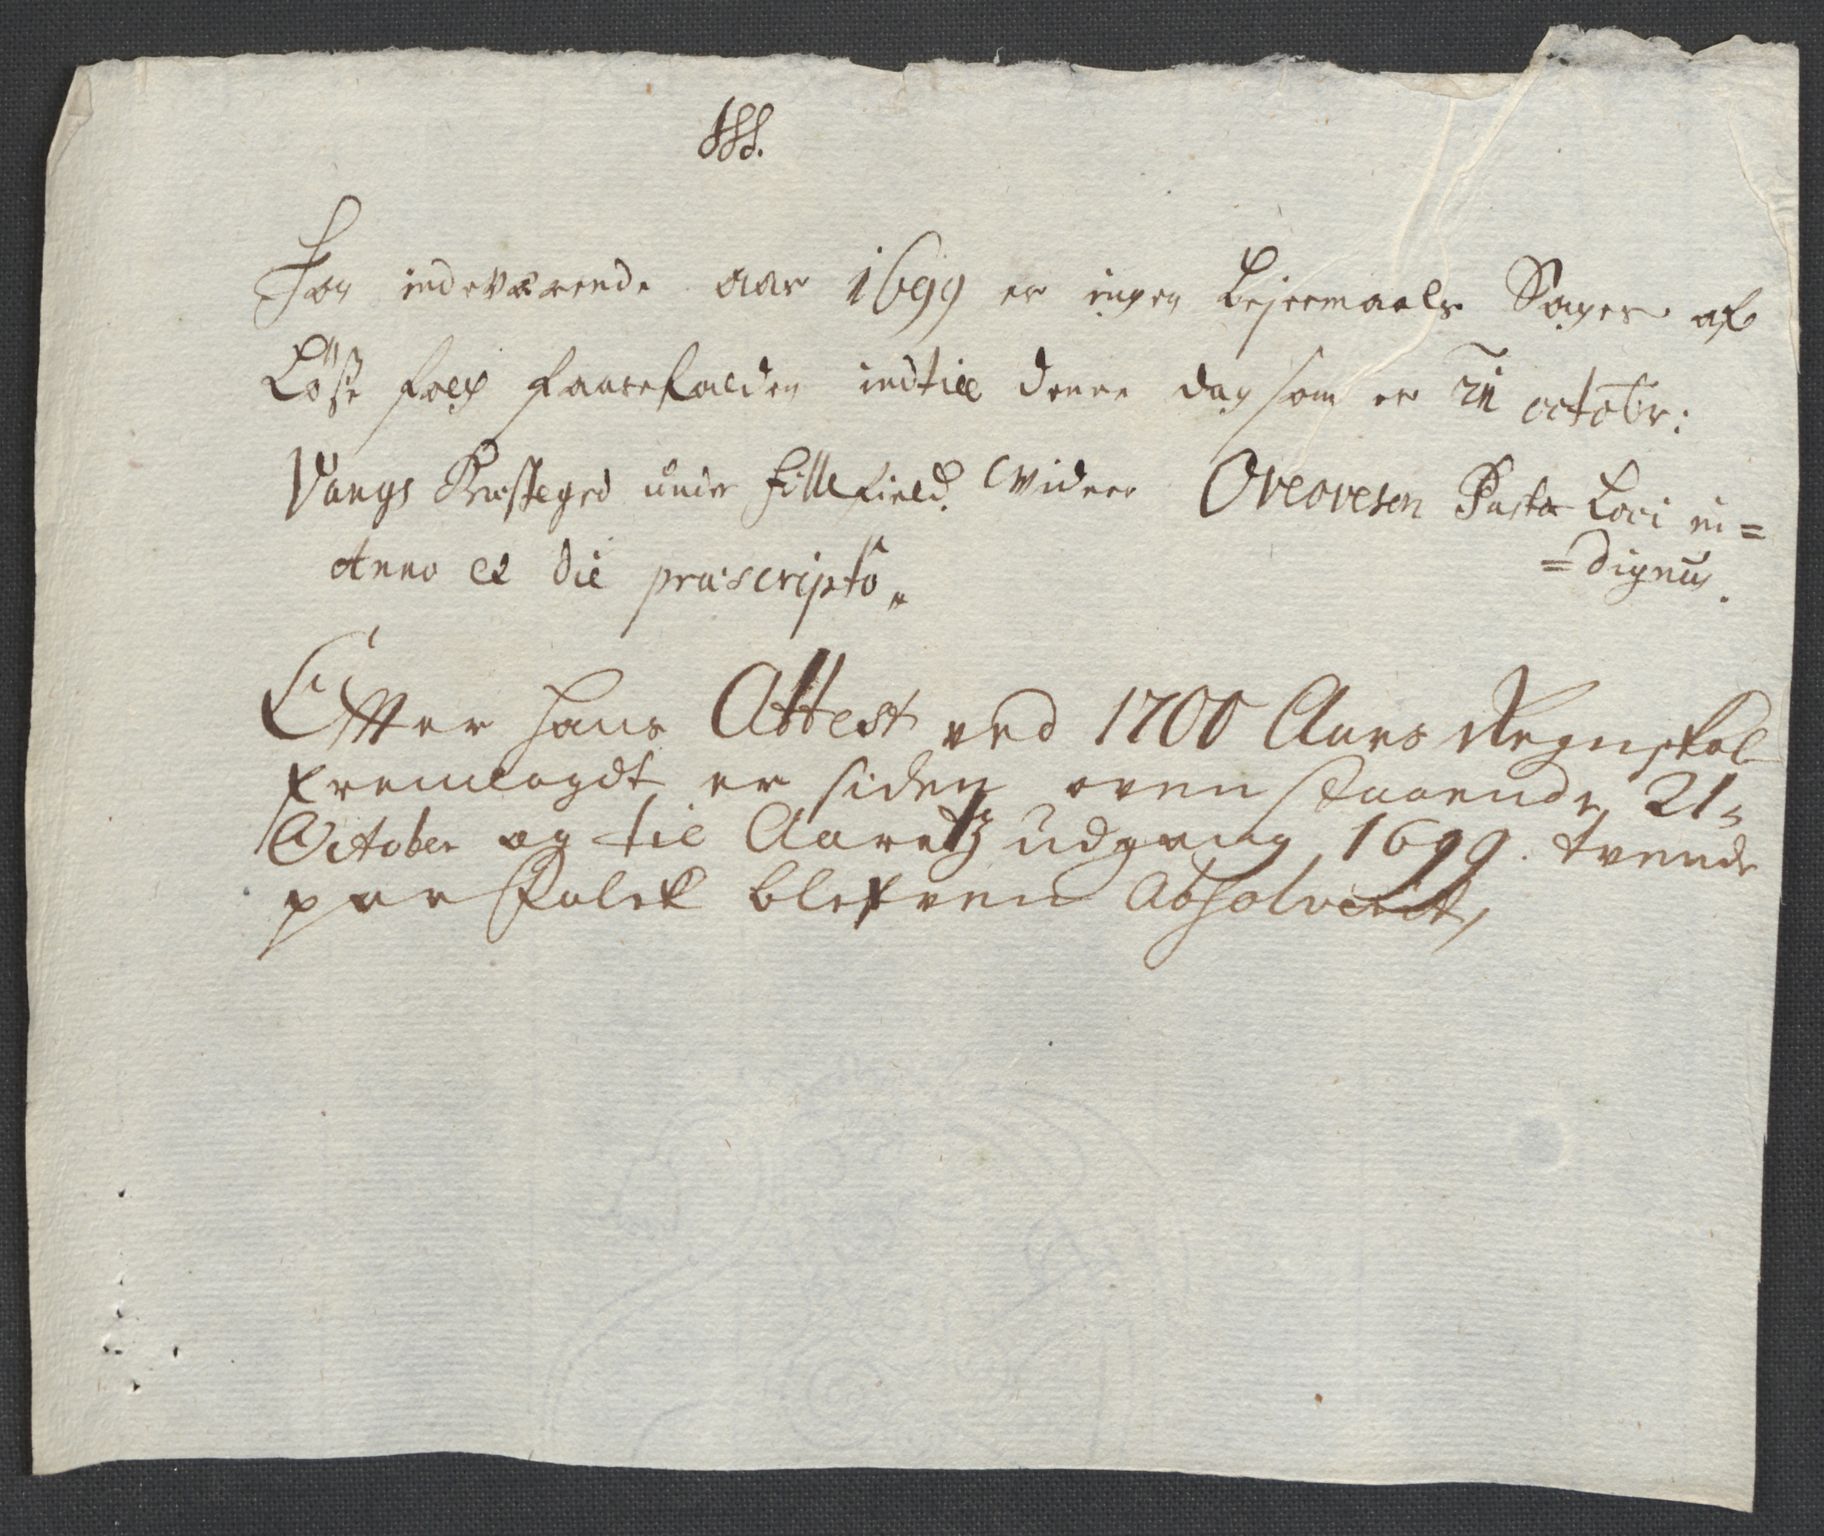 For indeværende aar 1699 er ingen Lejermaals Sager af
Löse folch faarefalden indtill denne dag som er 21 octobr:
Vangs Præstegrd under Fillefield. Widner Oveovesen Pastor Loci in=
=dignus.
Anno et die præscripto.
Effter hans Attest ved 1700 Aars Regnskab
fremlagdt er siden ovenstaaende 21
October og til Aaretz udgang 1699. tvende
par Folck blefven Absolverit,